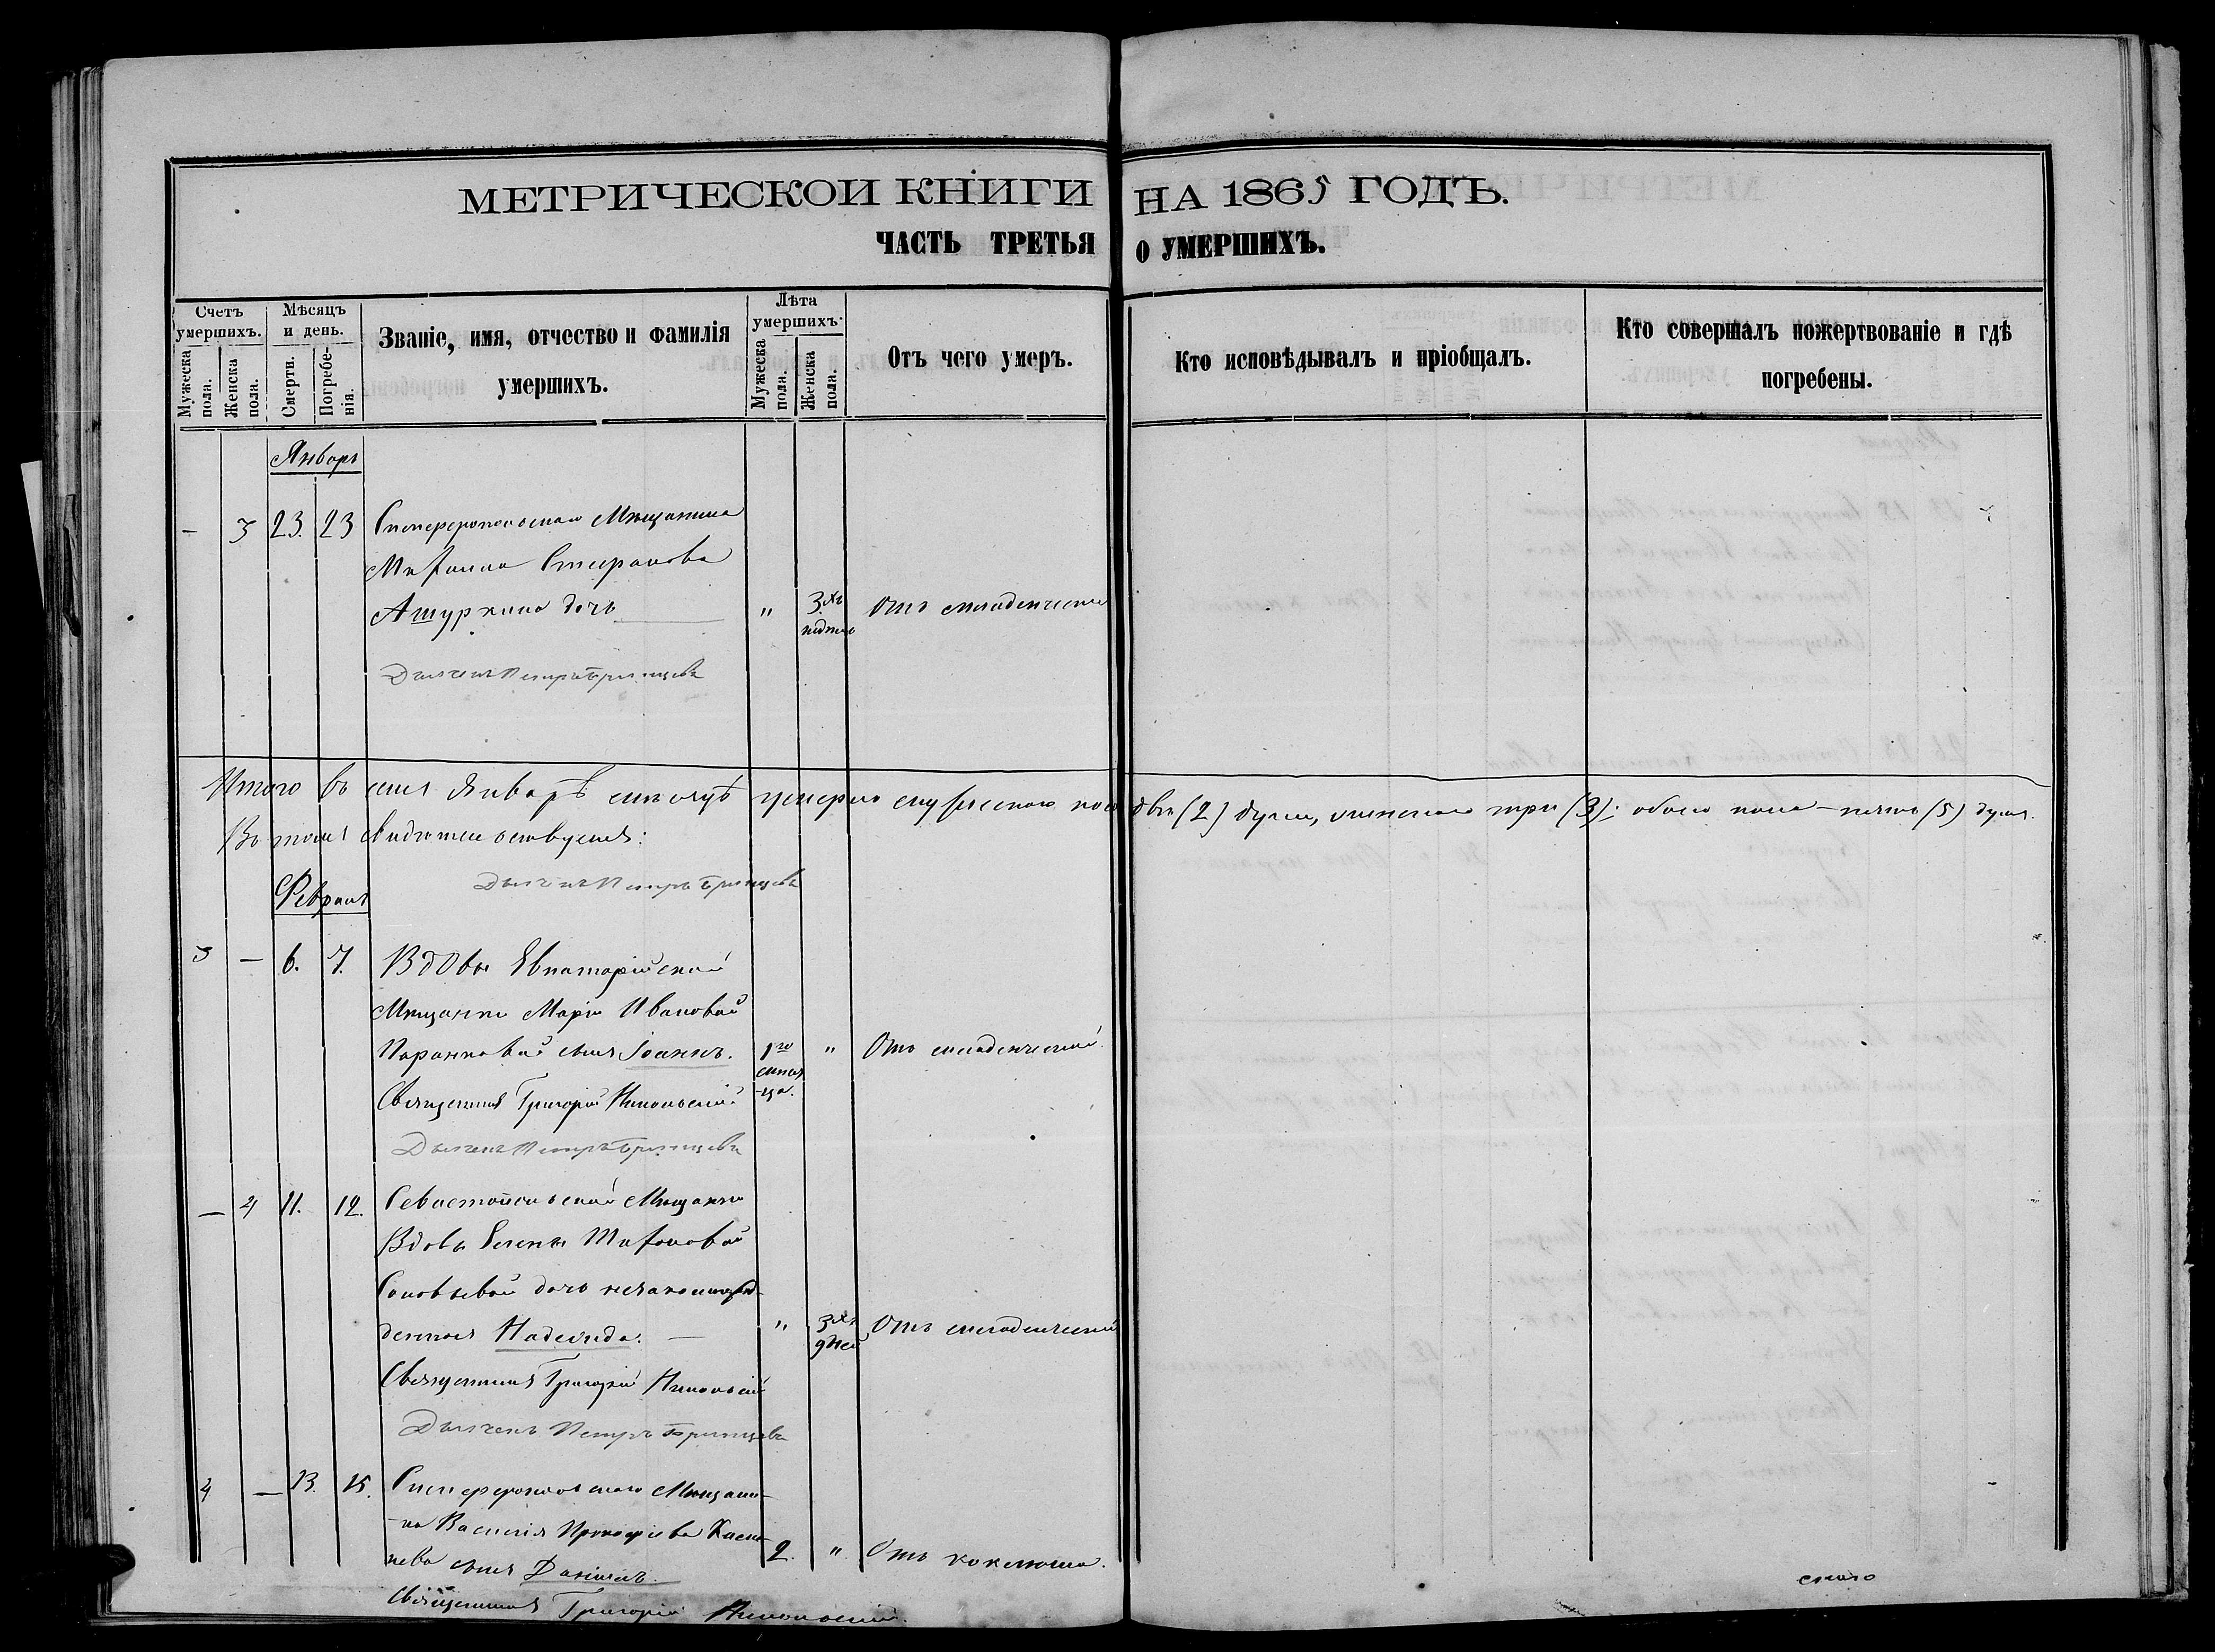 МЕТРИЧЕСКОЙ КНИГИ НА 1865 ГОДЪ.
ЧАСТЬ ТРЕТЬЯ О УМЕРШИХЪ.
Счетъ умершихъ.
Мужеска пола.
Женска пола.
Мѣсяцъ и день.
Смерти.
Погребенія.
Званіе, имя, отчество и фамилія
умершихъ.
Лѣта умершихъ.
Мужеска пола.
Женска пола.
Отъ чего умеръ.
Кто исповѣдывалъ и пріобщалъ.
Кто совершалъ пожертвованіе и гдѣ
погребены.
Январь
– 3 23. 23 Симферопольскаго Мѣщанина
Стефанова
дочь " 3хъ Отъ младенческой
недѣль
Дьячекъ Петръ
Итого въ семъ Январѣ мѣсяцѣ умерло мужескаго пола двѣ (2) души, женскаго три (3); обоего пола – пять (5) душъ.
Въ томъ свидѣтельствуемъ:
Дьячекъ Петръ
Февраль
3 – 6. 7. Вдовы Евпаторійской
Мѣщанки Маріи Ивановой
сынъ Іоаннъ. 1го " Отъ младенческой.
мѣся-
ца.
Священникъ Григорій Никольскій
Дьячекъ Петръ
– 4 11. 12. Севастопольской Мѣщанки
Вдовы Елены
Соловьевой дочь незаконнорож-
денная Надежда. – " 3хъ Отъ младенческой
дней
Священникъ Григорій Никольскій
Дьячекъ Петръ
4 – 13. 15. Симферопольскаго Мѣщани-
-на Василія Прокофіева
сынъ Даніилъ. 2. " Отъ коклюша.
Священникъ Григорій Никольскій.